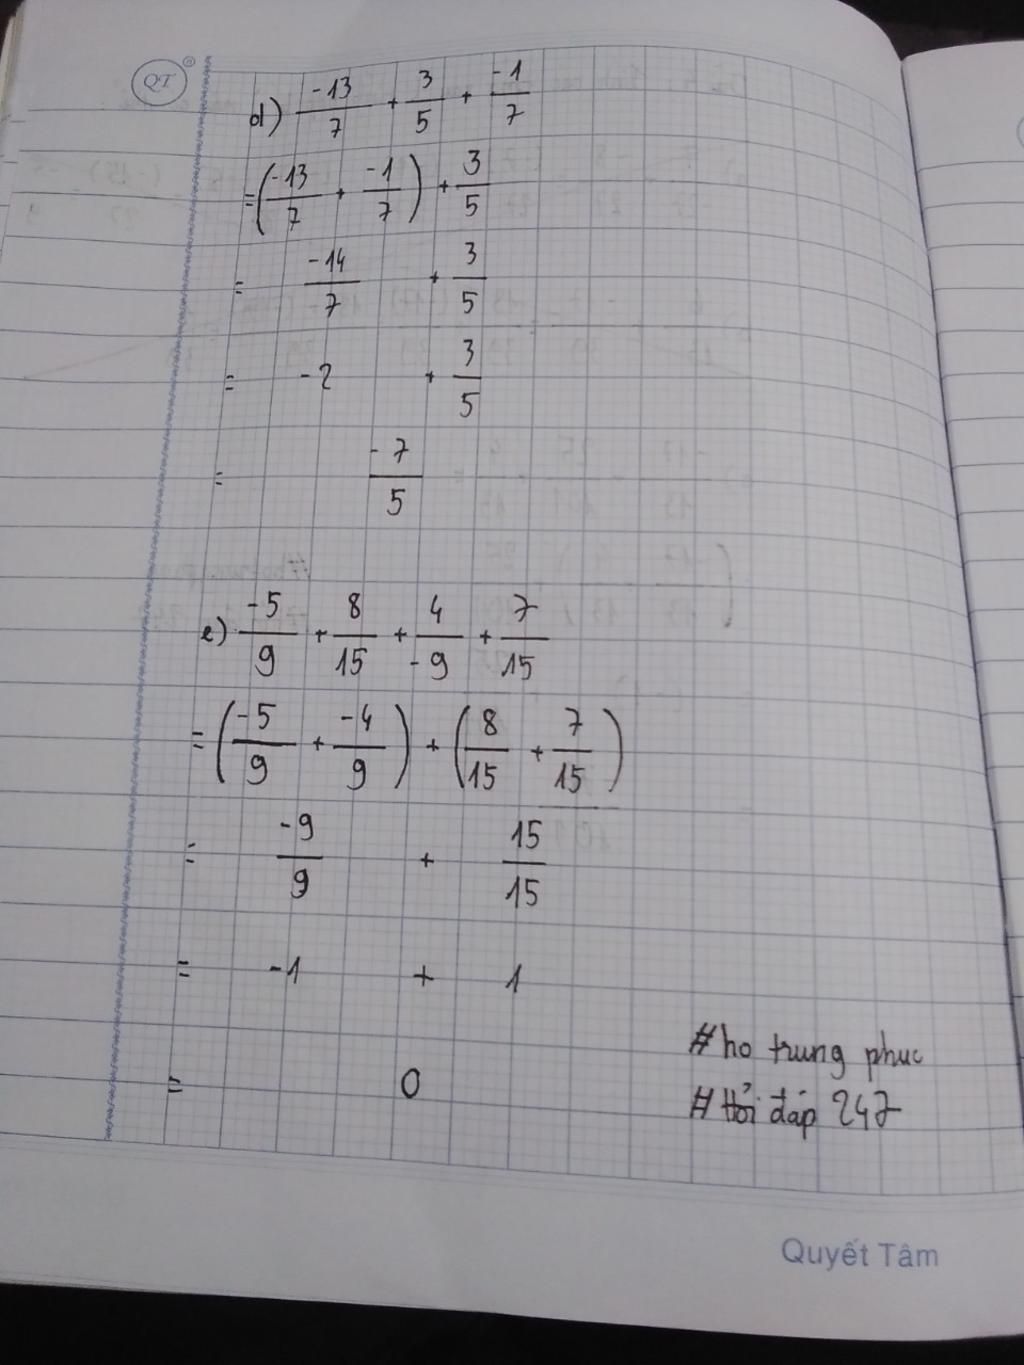 QT
d) -13/7 + 3/5 + -1/7
= (-13/7 + -1/7) + 3/5
= -14/7 + 3/5
= -2 + 3/5
= -7/5
e) -5/9 + 8/15 + 4/-9 + 7/15
= (-5/9 + -4/9) + (8/15 + 7/15)
= -9/9 + 15/15
= -1 + 1
= 0
#ho trung phuc
#Hỏi đáp 247
Quyết Tâm